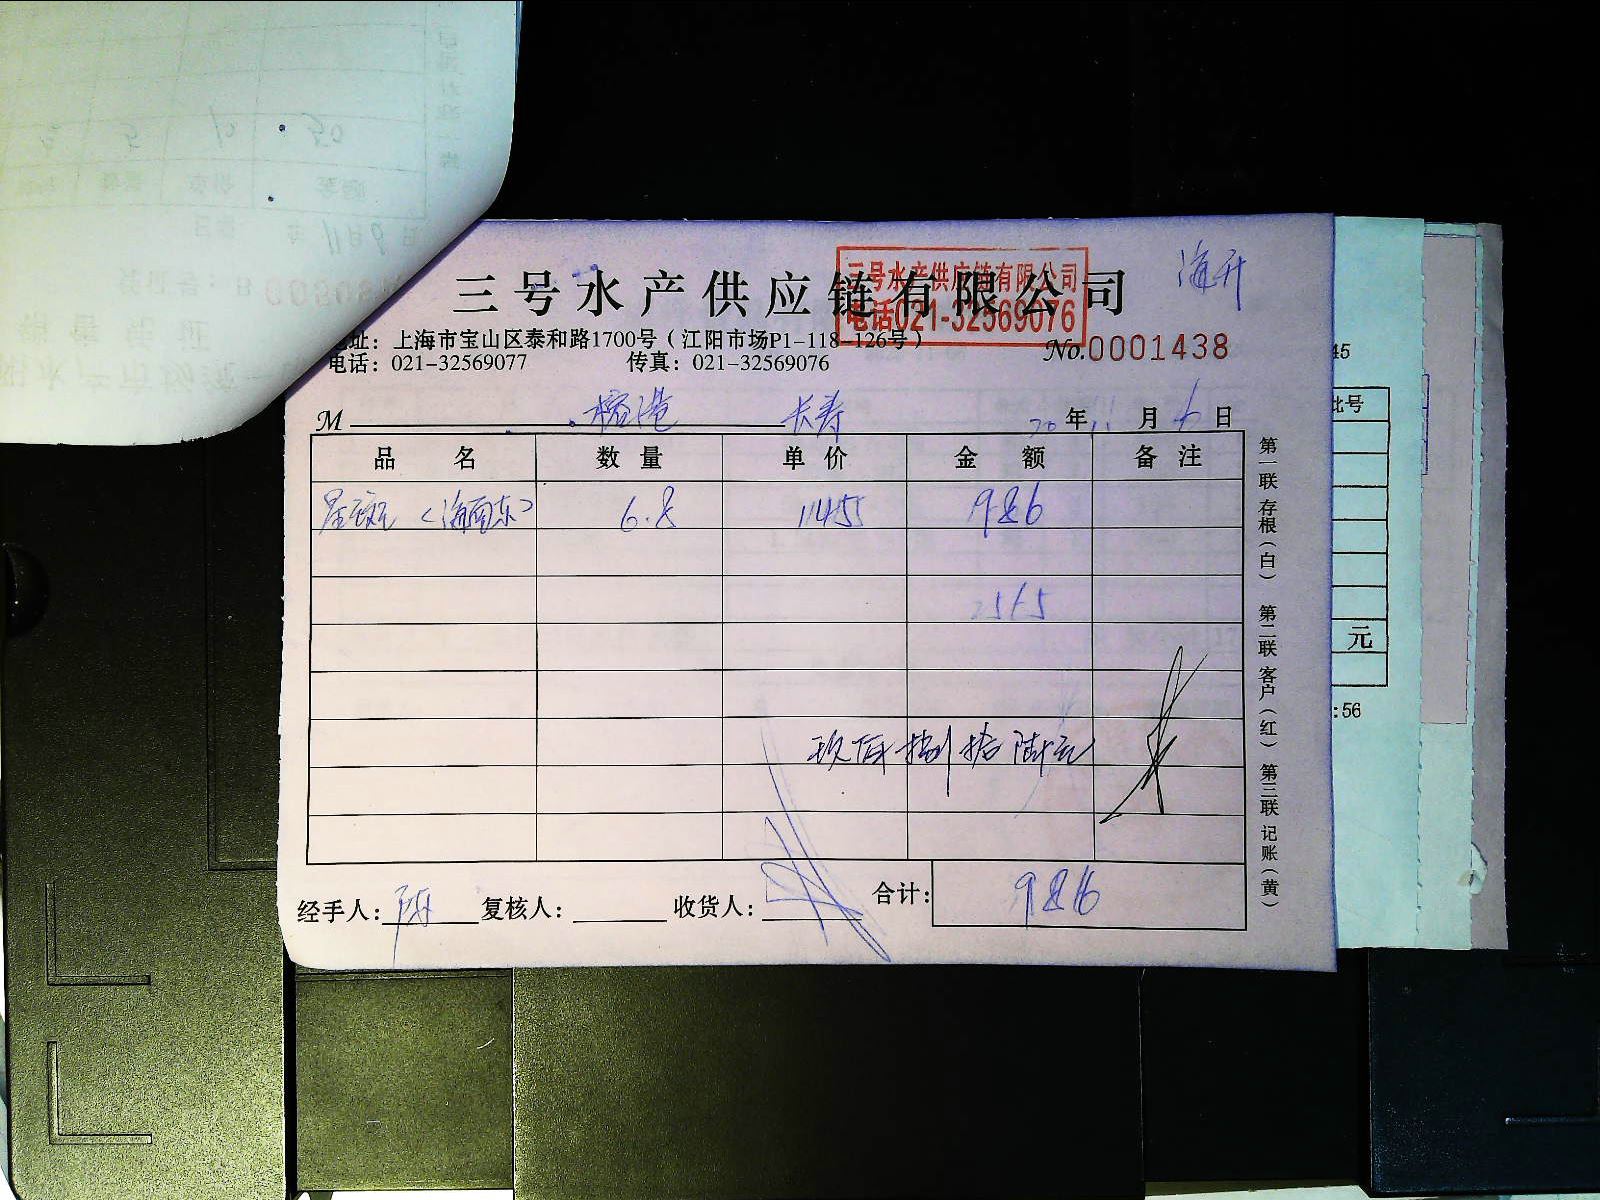 三号水产供应链有限公司
三号水产供应链有限公司
电话021-32569076
海升
址：上海市宝山区泰和路1700号（江阳市场P1-118-126号）
电话：021-32569077 传真：021-32569076
No.0001438
M 榕港 长寿 20年11月6日
品名 数量 单价 金额 备注
星斑（海南东） 6.8 145 986
玖佰捌拾陆元
经手人：陈 复核人： 收货人： 合计：986
第一联存根（白） 第二联客户（红） 第三联记账（黄）
45
批号
元
:56